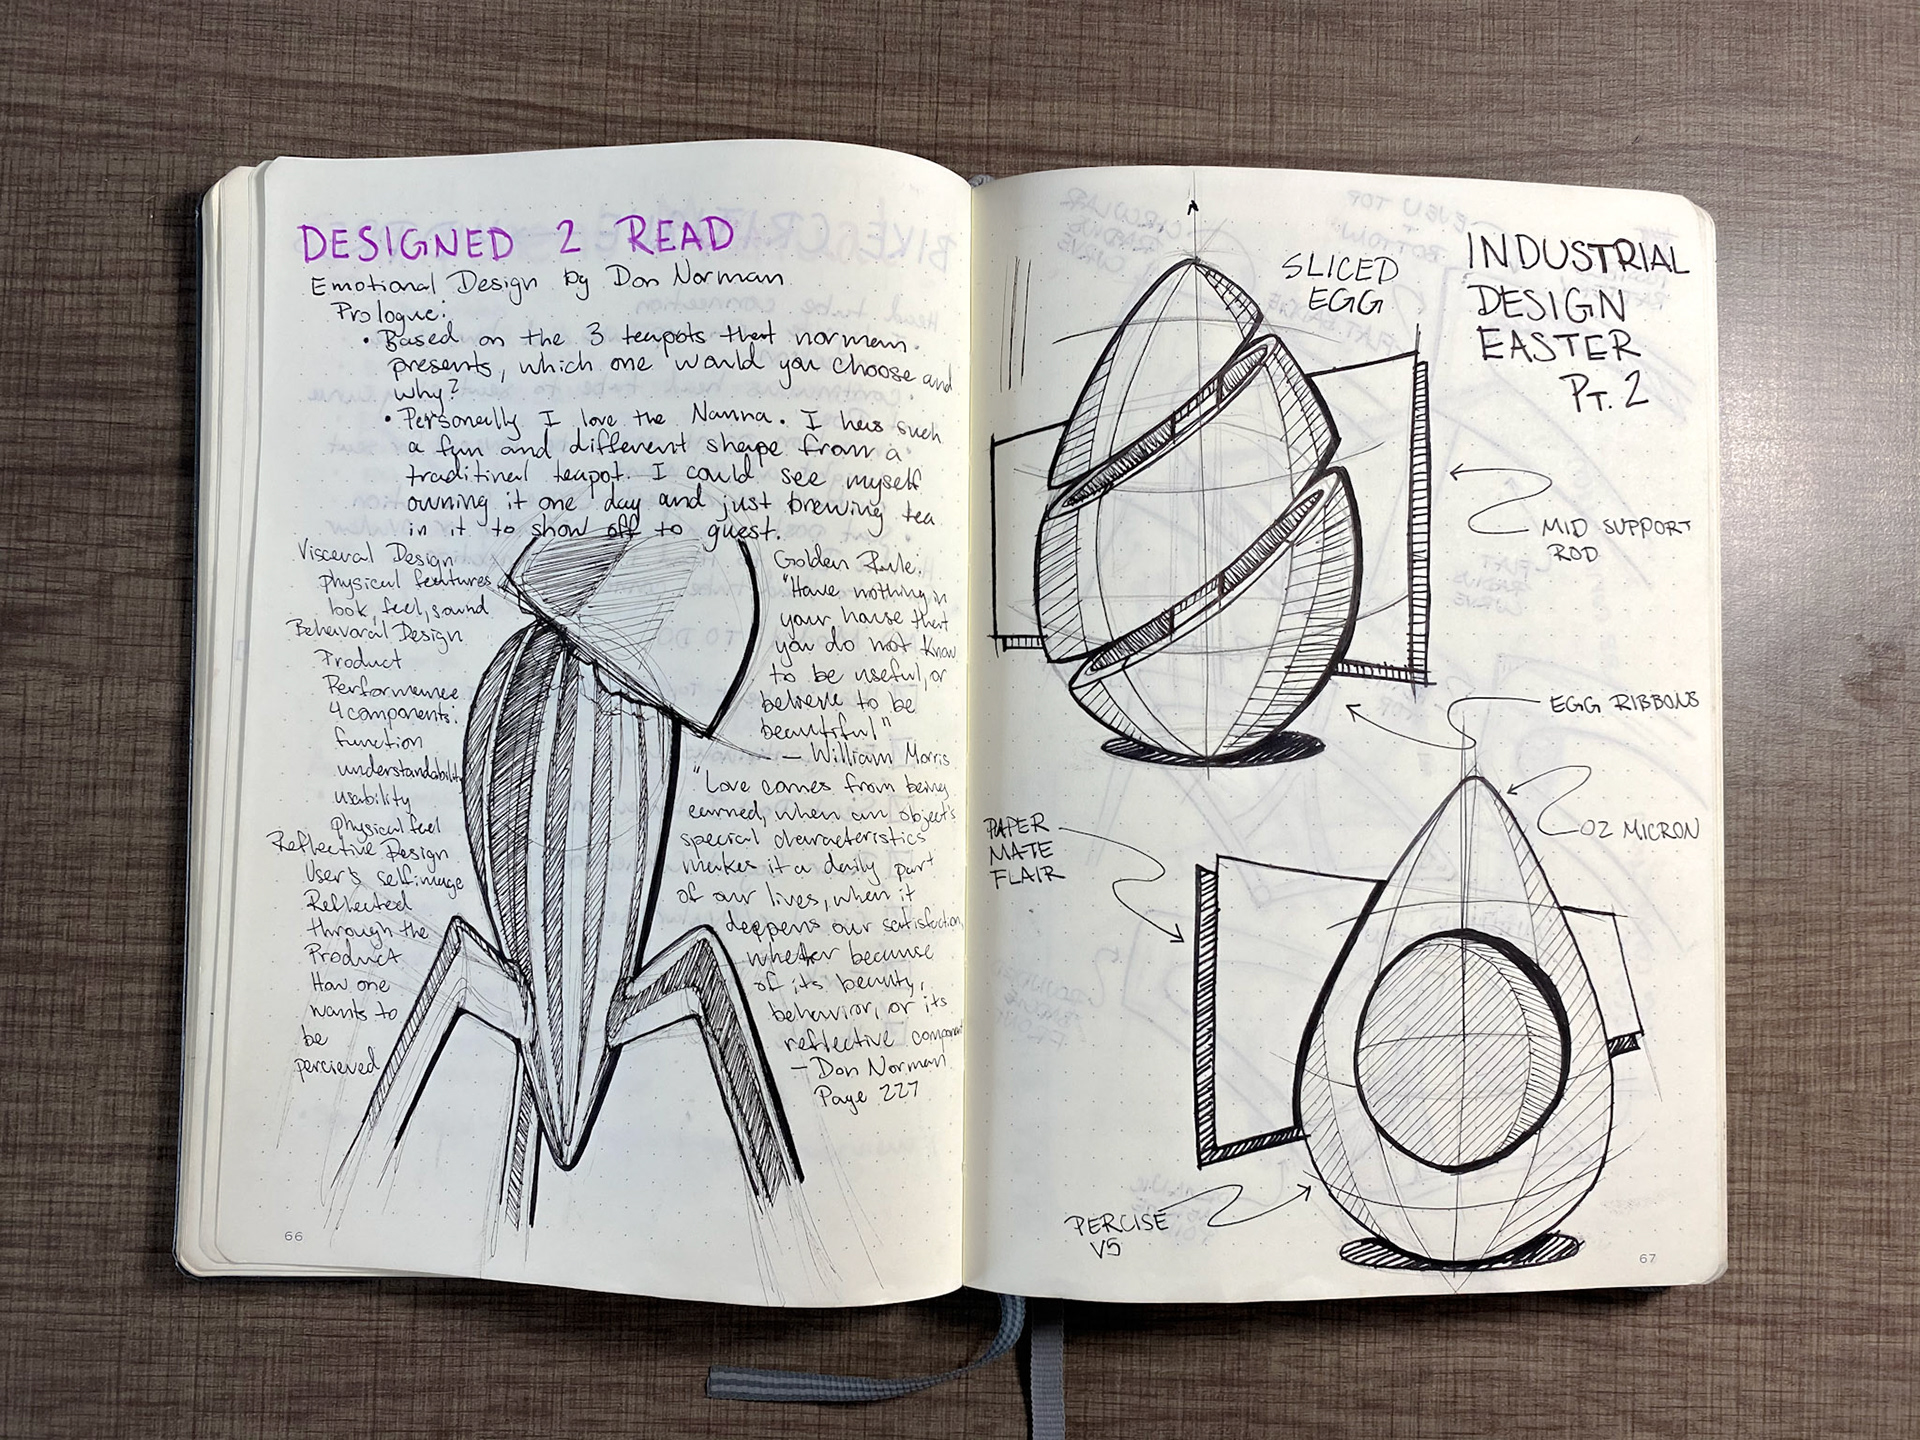 DESIGNED 2 READ
Emotional Design by Don Norman
Prologue:
• Based on the 3 teapots that norman
presents, which one would you choose and
why?
• Personally I love the Nanna. I has such
a fun and different shape from a
traditinal teapot. I could see myself
owning it one day and just brewing tea
in it to show off to guest.
Visceral Design
physical features
look, feel, sound
Behavoral Design
Product
Performance
4 components:
function
understandability
usability
physical feel
Reflective Design
User's self image
Reflected
through the
Product
How one
wants to
be
percieved
Golden Rule:
"Have nothing in
your house that
you do not know
to be useful, or
believe to be
beautiful"
— William Morris
"Love comes from being
earned, when an object's
special characteristics
makes it a daily part
of our lives, when it
deepens our satisfaction,
whether because
of its beauty,
behavior, or its
reflective component
— Don Norman
Page 227
66
INDUSTRIAL
DESIGN
EASTER
PT. 2
SLICED
EGG
MID SUPPORT
ROD
EGG RIBBONS
02 MICRON
PAPER
MATE
FLAIR
PERCISE
V5
67